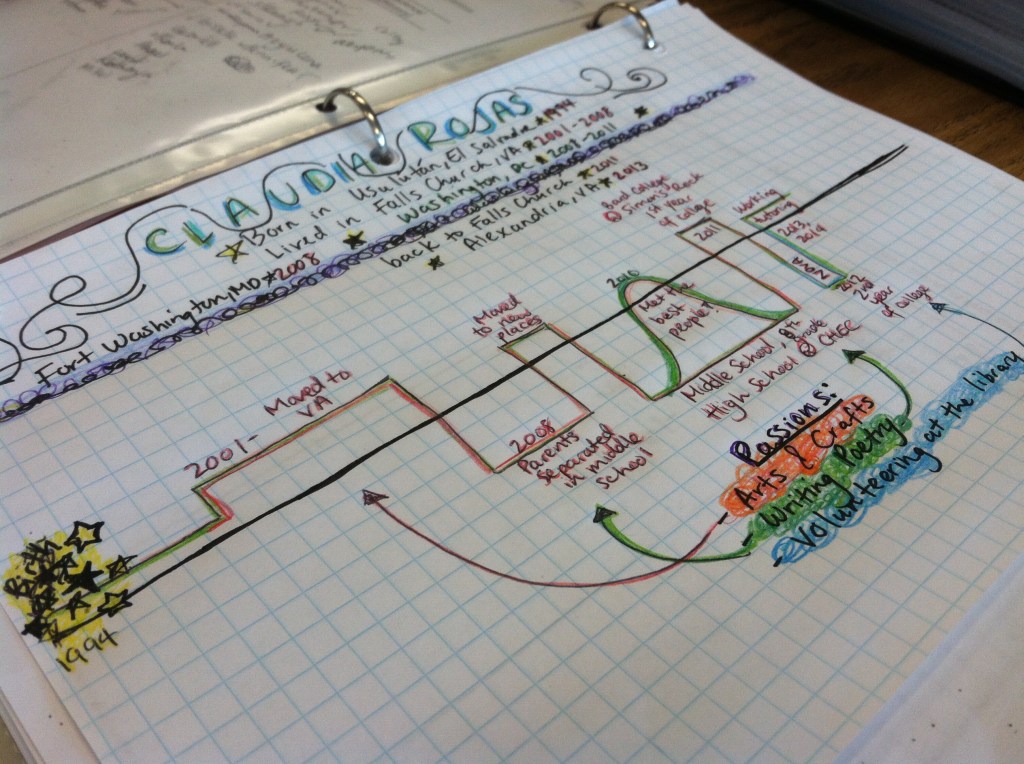 CLAUDIA ROJAS
Born in Usulután, El Salvador *1994
Lived in Falls Church, VA *2001-2008
Fort Washington, MD *2008
Washington, DC *2009-2011
back to Falls Church *2011
Alexandria, VA *2013
Birth
1994
2001-
Moved to VA
2008
Parents
separated
in middle
school
Moved
to new
places
2010
Met the
best
people!
Middle School, 8th grade
High School @ CHGE
2011
Bard College
@ Simon's Rock
1st year
of college
Working
tutoring
2013,
2014
NOVA
2012
2nd
year
of college
Passions:
- Arts & Crafts
- Writing Poetry
- Volunteering at the library